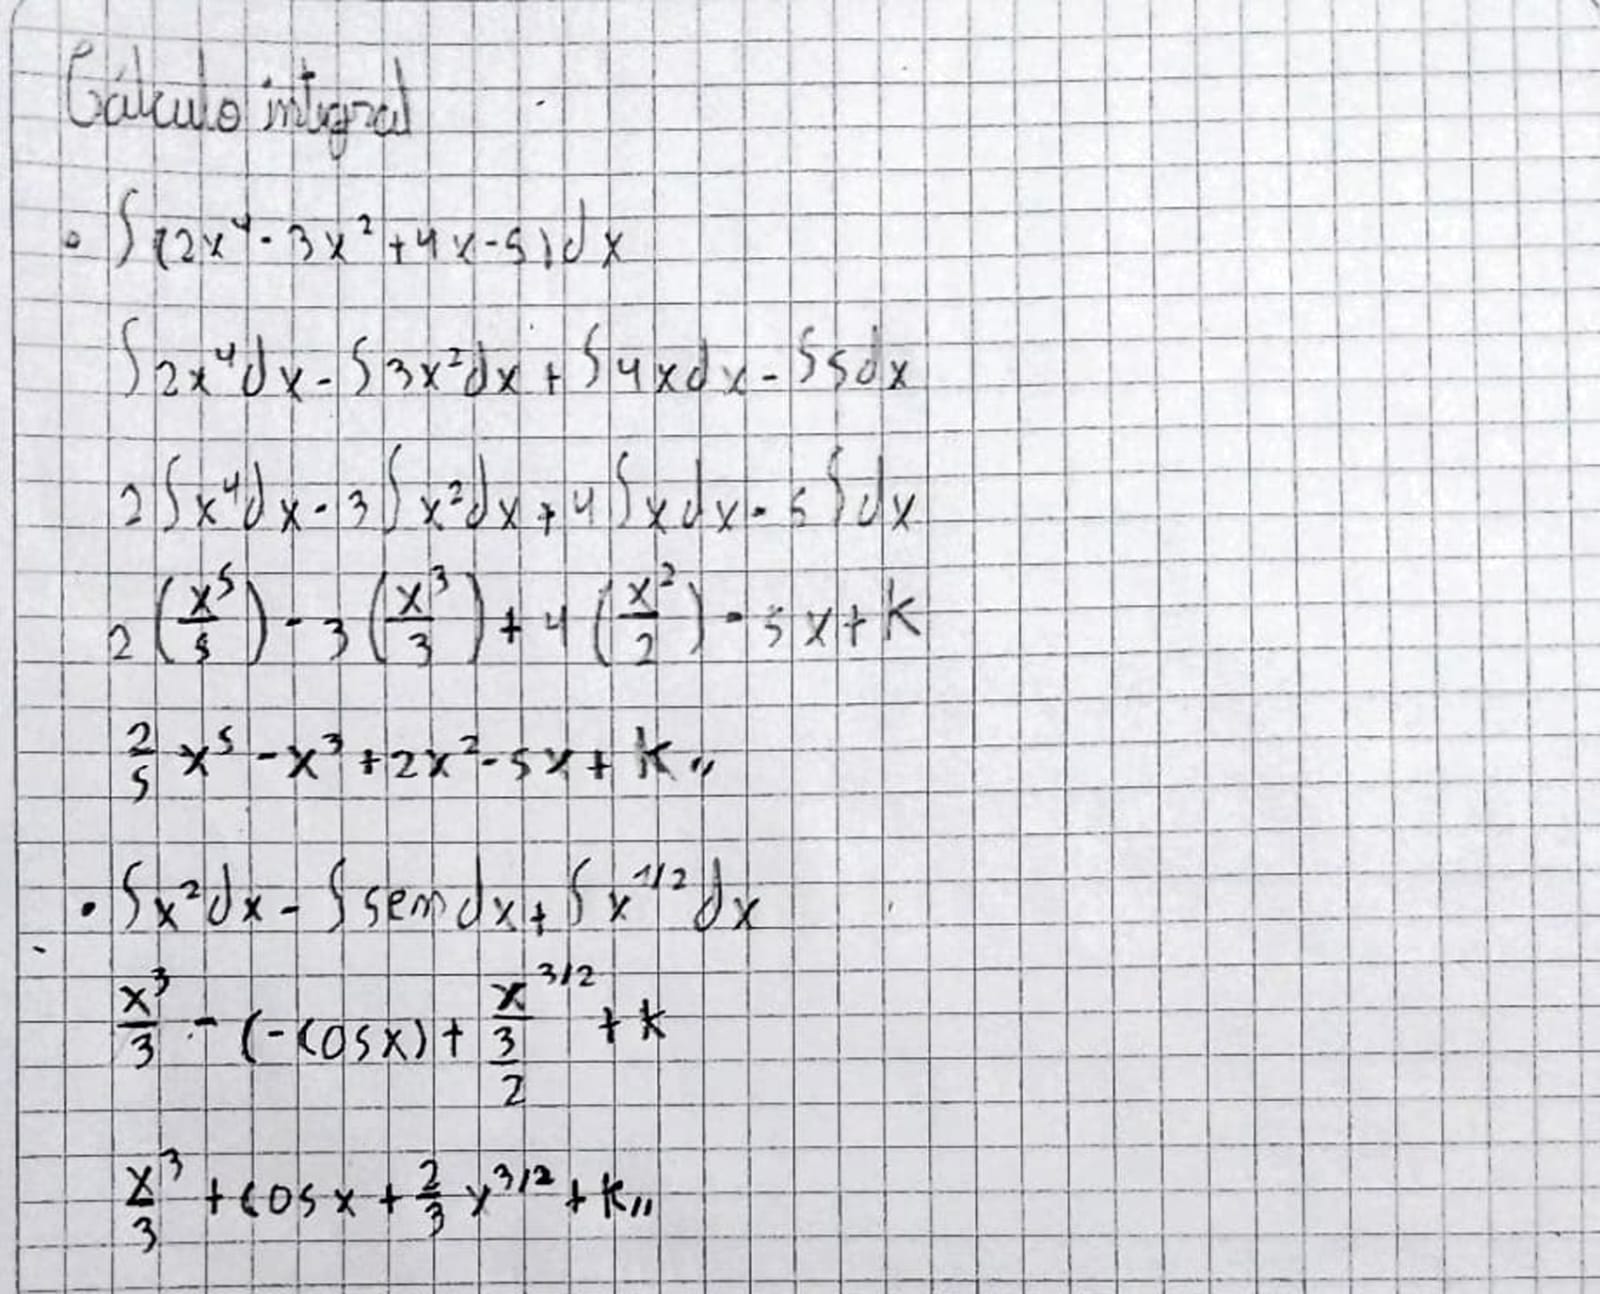 Cálculo integral
• ∫(2x⁴ - 3x² + 4x - 5)dx
∫2x⁴dx - ∫3x²dx + ∫4xdx - ∫5dx
2∫x⁴dx - 3∫x²dx + 4∫xdx - 5∫dx
2(x⁵/5) - 3(x³/3) + 4(x²/2) - 5x + K
2/5 x⁵ - x³ + 2x² - 5x + K,,
• ∫x²dx - ∫sem dx + ∫x^1/2 dx
x³/3 - (-cosx) + x^3/2/(3/2) + K
x³/3 + cosx + 2/3 x^3/2 + K,,